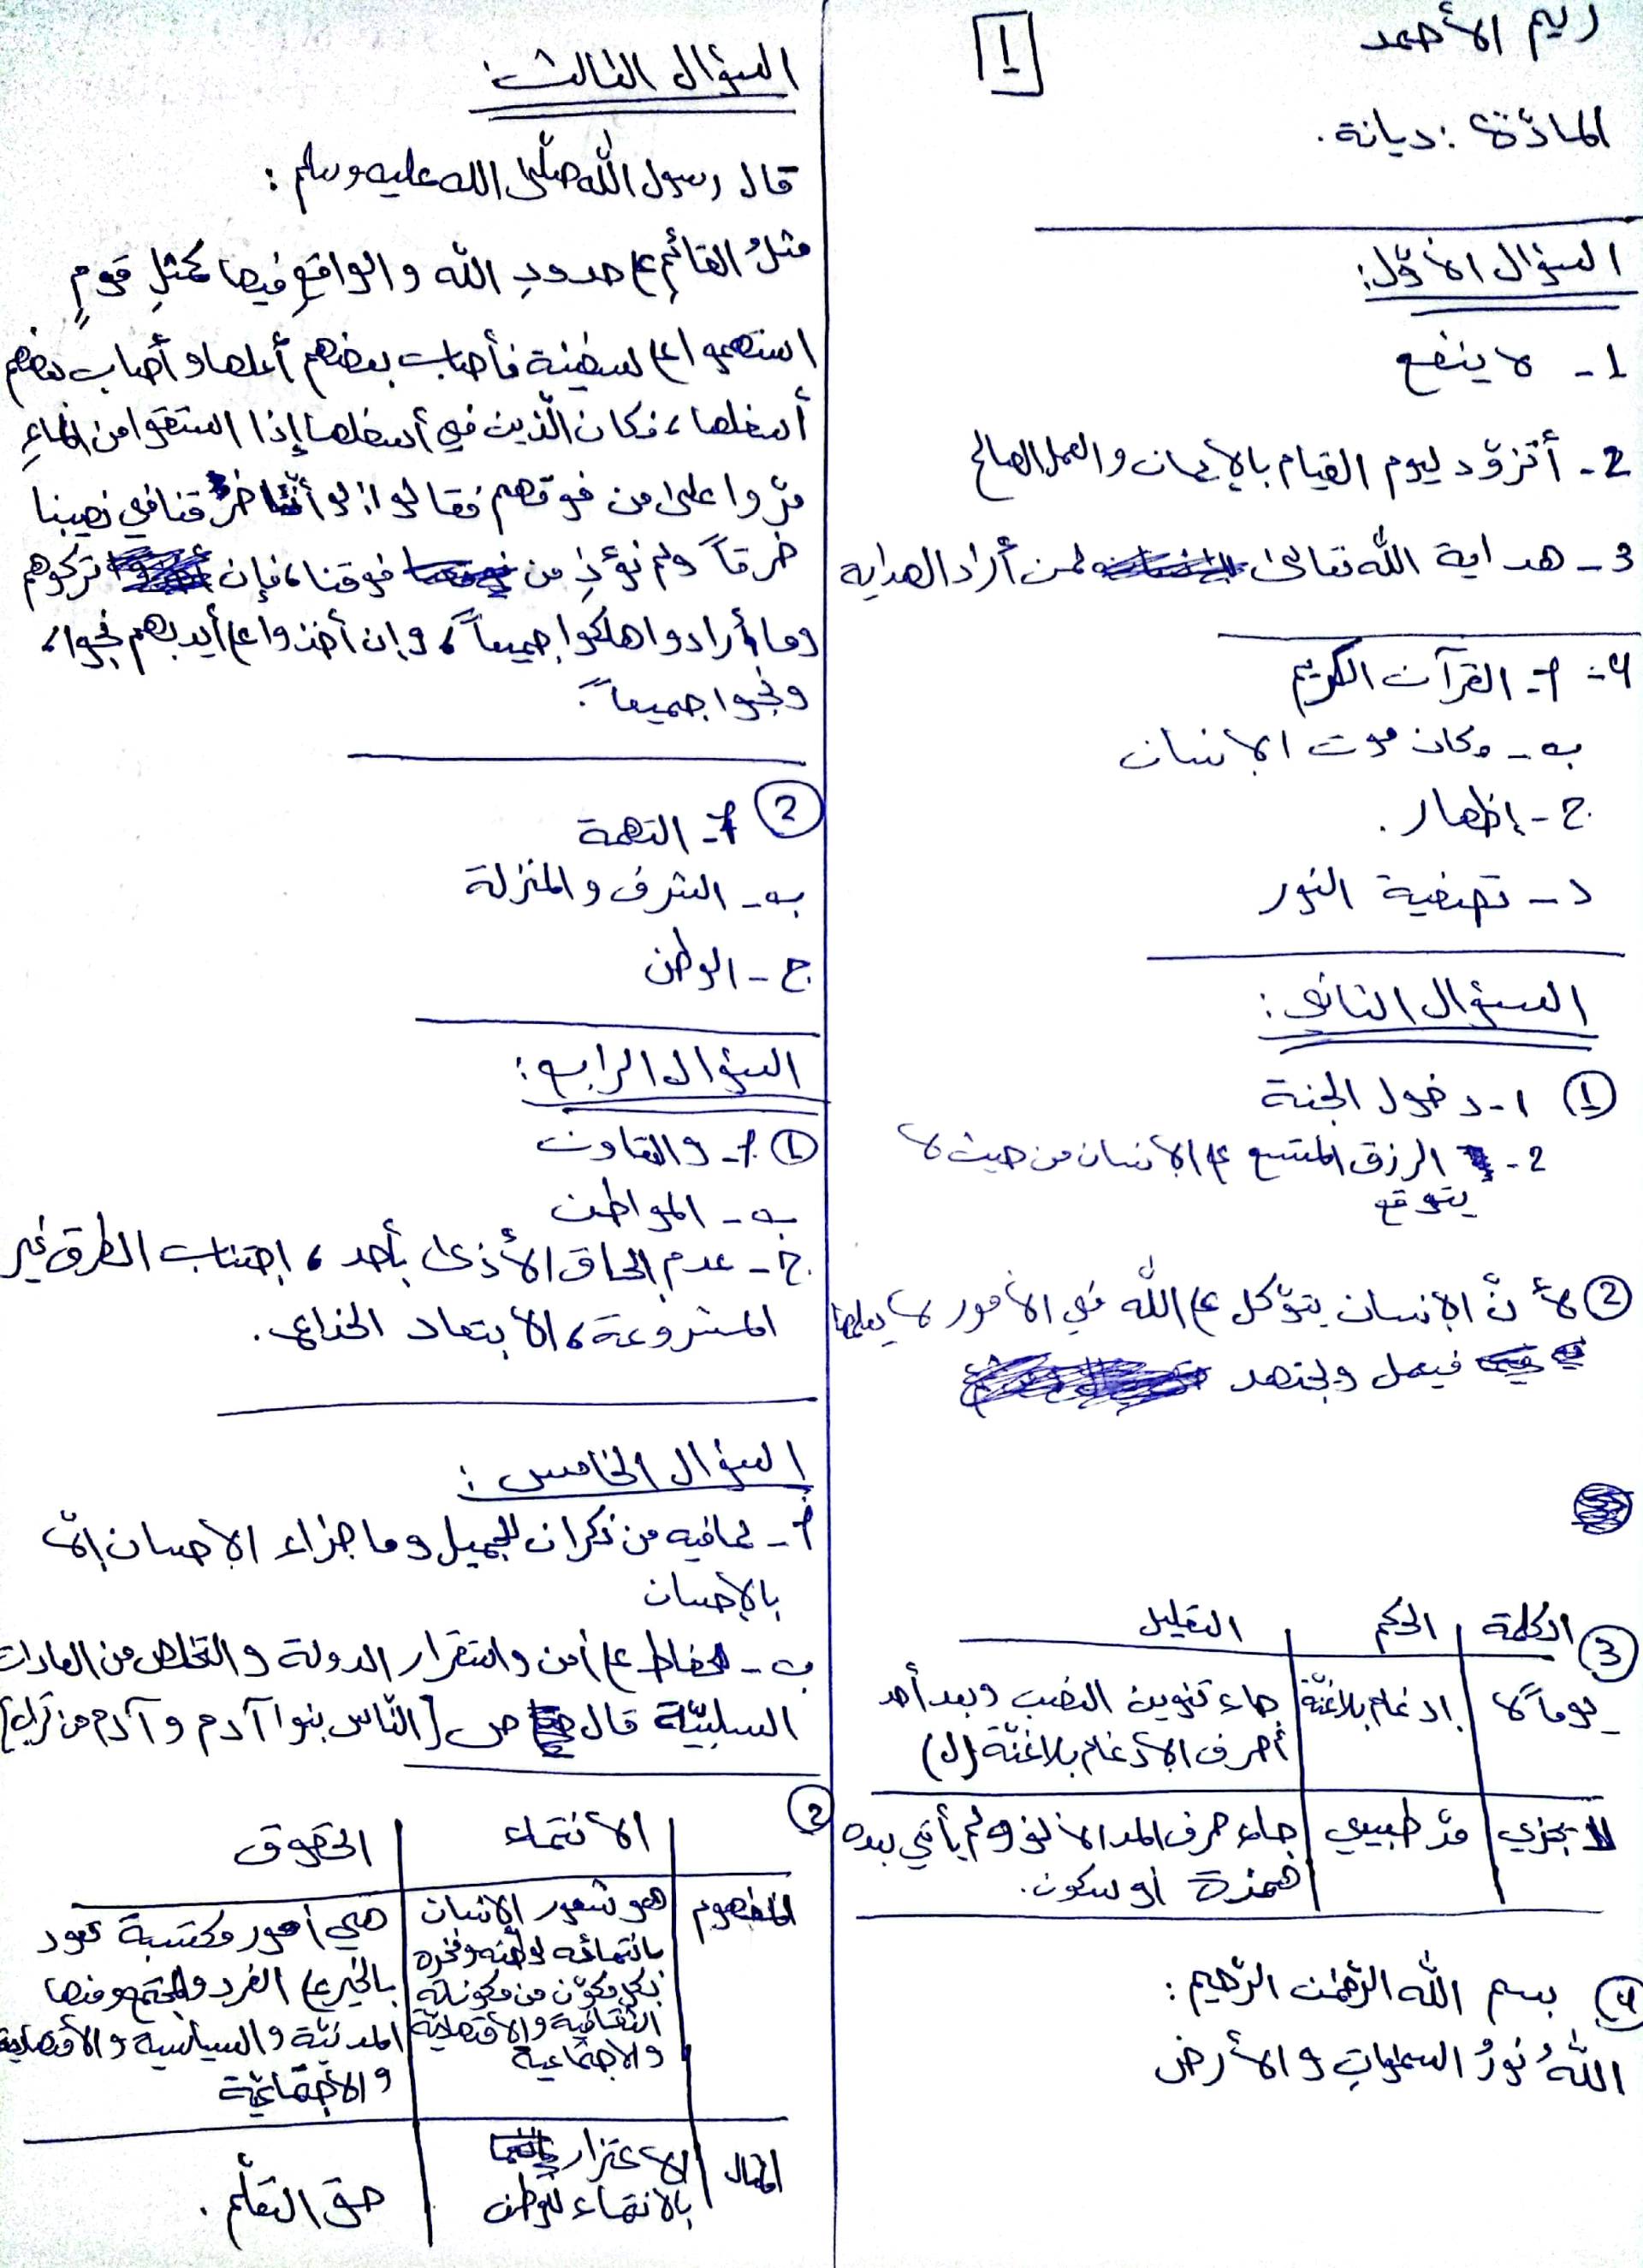 ريم الأحمد
1
المادّة: ديانة.
السؤال الأوّل:
1- لا ينفع
2- أتزوّد ليوم القيام بالإيمان والعمل الصالح
3- هداية الله تعالى لمن أراد الهداية
4- أ- القرآن الكريم
ب- مكان موت الإنسان
ج- إظهار.
د- تصفية النور
السؤال الثاني:
① 1- دخول الجنة
2- الرزق المتسع ع الإنسان من حيث لا
يتوقع
② لأنّ الإنسان يتوّكل ع الله في الأمور لا يعلمها
فيعمل ويجتهد
③ الكلمة الحكم التعليل
يوماً لا إدغام بلاغنّة جاء تنوين النصب وبعد أحد
أحرف الإدغام بلاغنّة (ل)
لا يجزي مدّ طبيعي جاء حرف المد الألف ولم يأتي بعده
همزة أو سكون.
④ بسم الله الرّحمٰن الرّحيم:
اللهُ نورُ السمٰواتِ والأرض
السؤال الثالث:
قال رسول الله صلّى الله عليه وسلم:
مثلُ القائم ع حدودِ الله والواقعِ فيها كمثلِ قومٍ
استهموا ع سفينة فأصاب بعضهم أعلاها وأصاب بعضهم
أسفلها، فكان الّذين في أسفلها إذا استقوا من الماءِ
مرّوا على من فوقهم فقالوا: لو أنّنا خرقنا في نصيبنا
خرقاً ولم نؤذِ من فوقنا، فإن تركوهم
وما أرادوا هلكوا جميعاً، وإن أخذوا ع أيديهم نجوا،
ونجوا جميعاً".
② أ- التهمة
ب- الشرف والمنزلة
ج- الوطن
السؤال الرابع:
① أ- والتعاون
ب- المواطن
ج- عدم إلحاق الأذى بأحد، اجتناب الطرق غير
المشروعة، الابتعاد الخداع.
السؤال الخامس:
أ- لما فيه من نكران للجميل وما جزاء الإحسان إلّا
بالإحسان
ب- حفاظ ع أمن واستقرار الدولة والتخلص من العادات
السلبيّة قال ص [النّاس بنوا آدم وآدم من تراب]
② الأنتماء الحقوق
المفهوم هو شعور الإنسان هي أمور مكتسبة تعود
بانتمائه لوطنه وفخره بالخير ع الفرد والمجتمع ومنها
بكل مكوّن من مكوناته المدنيّة والسياسية والأقتصادية
الثقافية والأقتصاديّة والأجتماعيّة
والاجتماعية
المثال الاعتزار حق التعلّم.
بالانتماء للوطن